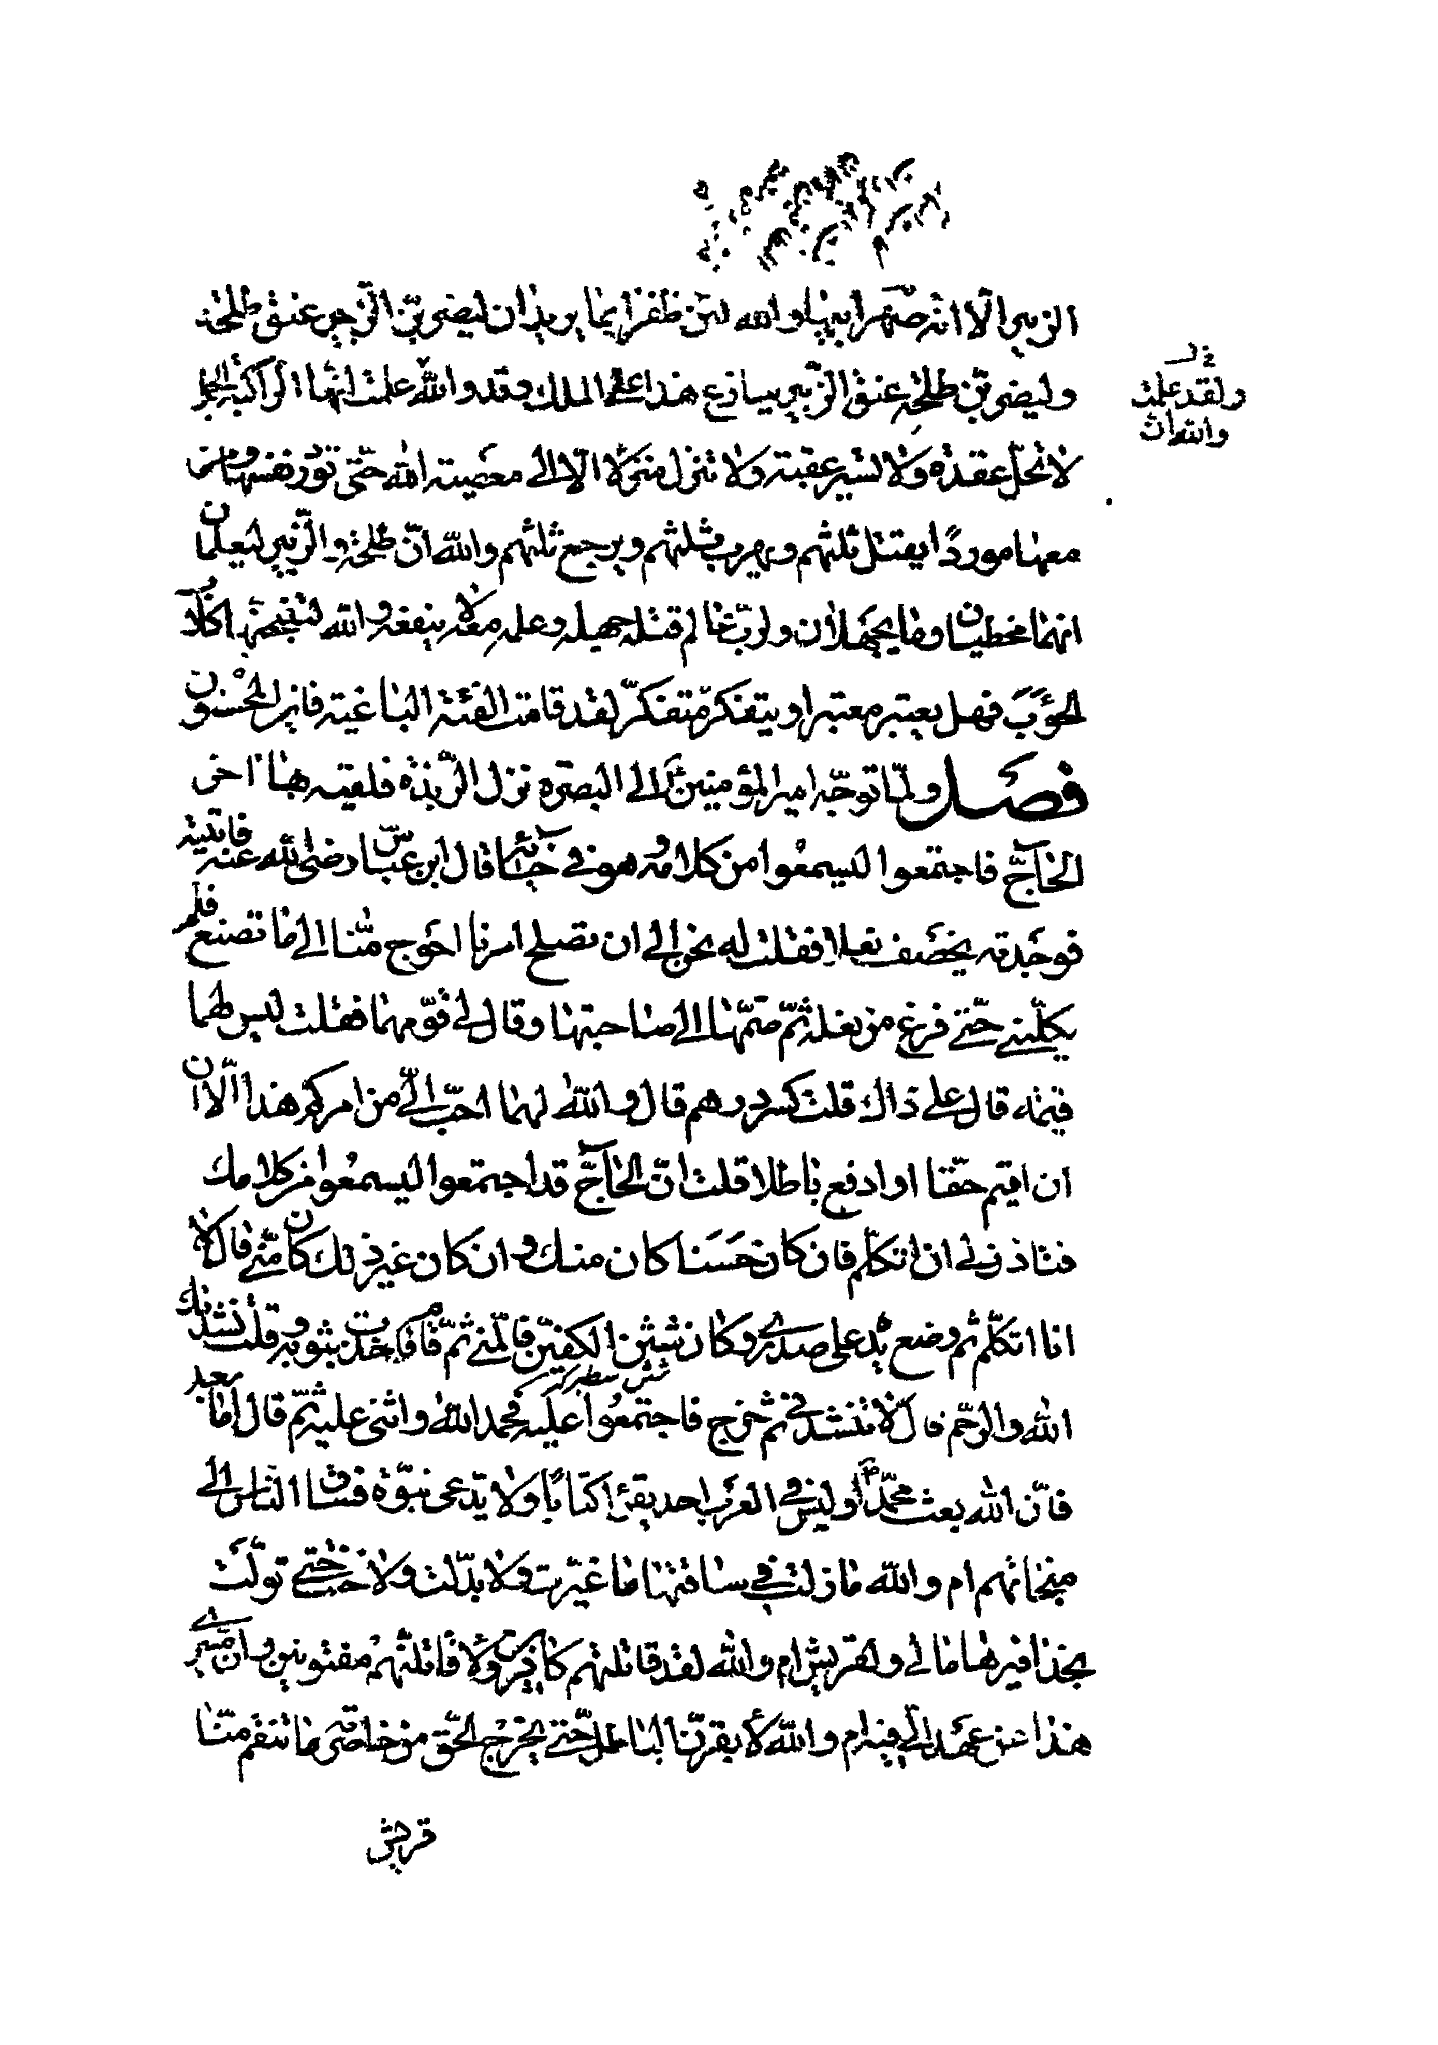 الزبير الا انه صهرا بيها والله لئن ظفرا بما يريدان ليضربنّ الزبير عنق طلحة
وليضربنّ طلحة عنق الزبير ينازع هذا على الملك وقد والله علمت انها الراكبة الجمل
لا تحلّ عقدة ولا تسير عقبة ولا تنزل منزلا الا الى معصية الله حتى تورد نفسها ومن
معها موردًا يقتل ثلثهم ويهرب ثلثهم ويرجع ثلثهم والله انّ طلحة والزبير ليعلمان
انهما مخطيان وما يجهلان ولربّ عالم قتله جهله وعلمه معه لا ينفعه والله لتنبحنّها كلاب
الحوءب فهل يعتبر معتبر او يتفكر متفكرّ لقد قامت الفئة الباغية فاين المحسنون
فصل ولمّا توجّه امير المؤمنين الى البصرة نزل الرّبذة فلقيه بها اخر
الحاجّ فاجتمعوا ليسمعوا من كلامه وهو في خبائه قال ابن عبّاس رضى الله عنه فاتيته
فوجدته يخصف نعلا فقلت له نحن الى ان تصلح امرنا احوج منّا الى ما تصنع فلم
يكلّمنى حتّى فرغ من نعله ثمّ ضمّها الى صاحبتها وقال لى قوّمهما فقلت ليس لهما
قيمة قال على ذاك قلت كسر درهم قال والله لهما احبّ الىّ من امركم هذا الّا ان
ان اقيم حقّا او ادفع باطلا قلت انّ الحاجّ قد اجتمعوا ليسمعوا من كلامك
فتاذن لى ان اتكلّم فان كان حَسَنا كان منك وان كان غير ذلك كان منّى قال لا
انا اتكلّم ثم وضع يده على صدرى وكان شثن الكفّين فالمنى ثمّ قام فاخذت بثوبه وقلت نشدتك
شثن سطبر
الله والرحم قال لا تنشدنى ثم خرج فاجتمعوا عليه فحمد الله واثنى عليه ثمّ قال امّا بعد
فانّ الله بعث محمّدا وليس فى العرب احد يقرء كتابًا ولا يدّعى نبوّة فساق النّاس الى
منجاتهم ام والله ما زلت فى ساقتها ما غيّرت ولا بدّلت ولا خنت حتى تولّت
بحذافيرها مالى ولقريش ام والله لقد قاتلتهم كافرين ولا قاتلنّهم مفتونين وان مسيرى
هذا عن عهد الىّ فيه ام والله لا بقرنّ الباطل حتّى يخرج الحّق من خاصرته ما تنقم منّا
قريش
ولقد علمت
والله ان